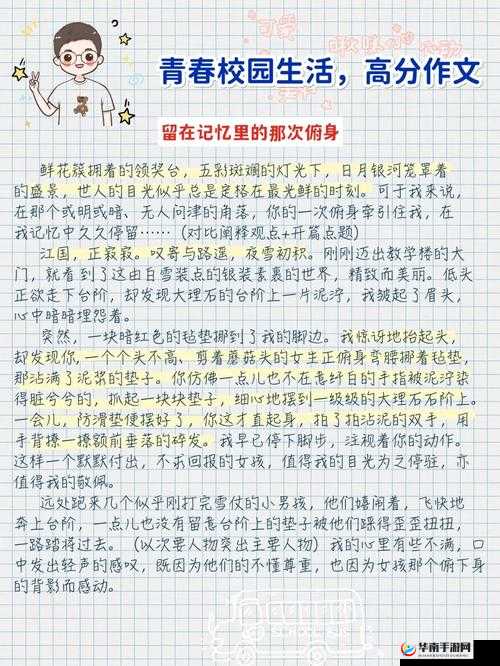 青春校园生活，高分作文
留在记忆里的那次俯身
鲜花簇拥着的领奖台，五彩斑斓的灯光下，日月银河笼罩着
的盛景，世人的目光似乎总是定格在最光鲜的时刻。可于我来说，
在那个或明或暗、无人问津的角落，你的一次俯身牵引住我，在
我记忆中久久停留……（对比阐释观点+开篇点题）
江国，正寂寂。叹寄与路遥，夜雪初积。刚刚迈出教学楼的大
门，就看到了这由白雪装点的银装素裹的世界，精致而美丽。低头
正欲走下台阶，却发现大理石的台阶上一片泥泞，我皱起了眉头，
心中暗暗埋怨着。
突然，一块暗红色的毡垫挪到了我的脚边。我惊讶地抬起头，
却发现你,一个个头不高、剪着蘑菇头的女生正俯身弯腰挪着毡垫，
那沾满了泥浆的垫子。你仿佛一点儿也不在意纤白的手指被泥泞染
得脏兮兮的，抓起一块块垫子，细心地摆到一级级的大理石石阶上。
一会儿，防滑垫便摆好了，你这才直起身，拍了拍沾泥的双手，用
手背撩一撩额前垂落的碎发。我早已停下脚步，注视着你的动作。
这样一个默默付出，不求回报的女孩，值得我的目光为之停驻，亦
值得我的敬佩。
远处跑来几个似乎刚打完雪仗的小男孩，他们嬉闹着，飞快地
奔上台阶，一点儿也没有留意台阶上的垫子被他们踩得歪歪扭扭，
一路踏将过去。（以次要人物突出主要人物）我的心里有些不满，口
中发出轻声的感叹，既因为他们的不懂尊重，也因为女孩那个俯下身
的背影而感动。
华南手游网